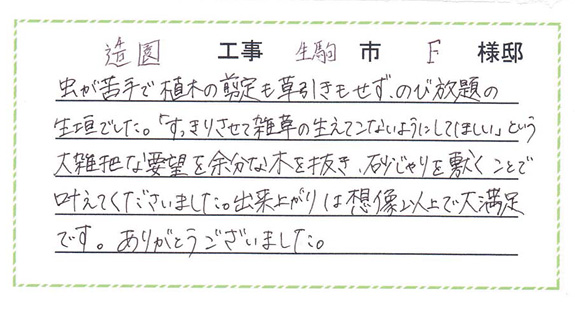 造園 工事 生駒 市 F 様邸
虫が苦手で植木の剪定も草引きもせず、のび放題の
生垣でした。「すっきりさせて雑草の生えてこないようにしてほしい」という
大雑把な要望を余分な木を抜き、砂じゃりを敷くことで
叶えてくださいました。出来上がりは想像以上で大満足
です。ありがとうございました。